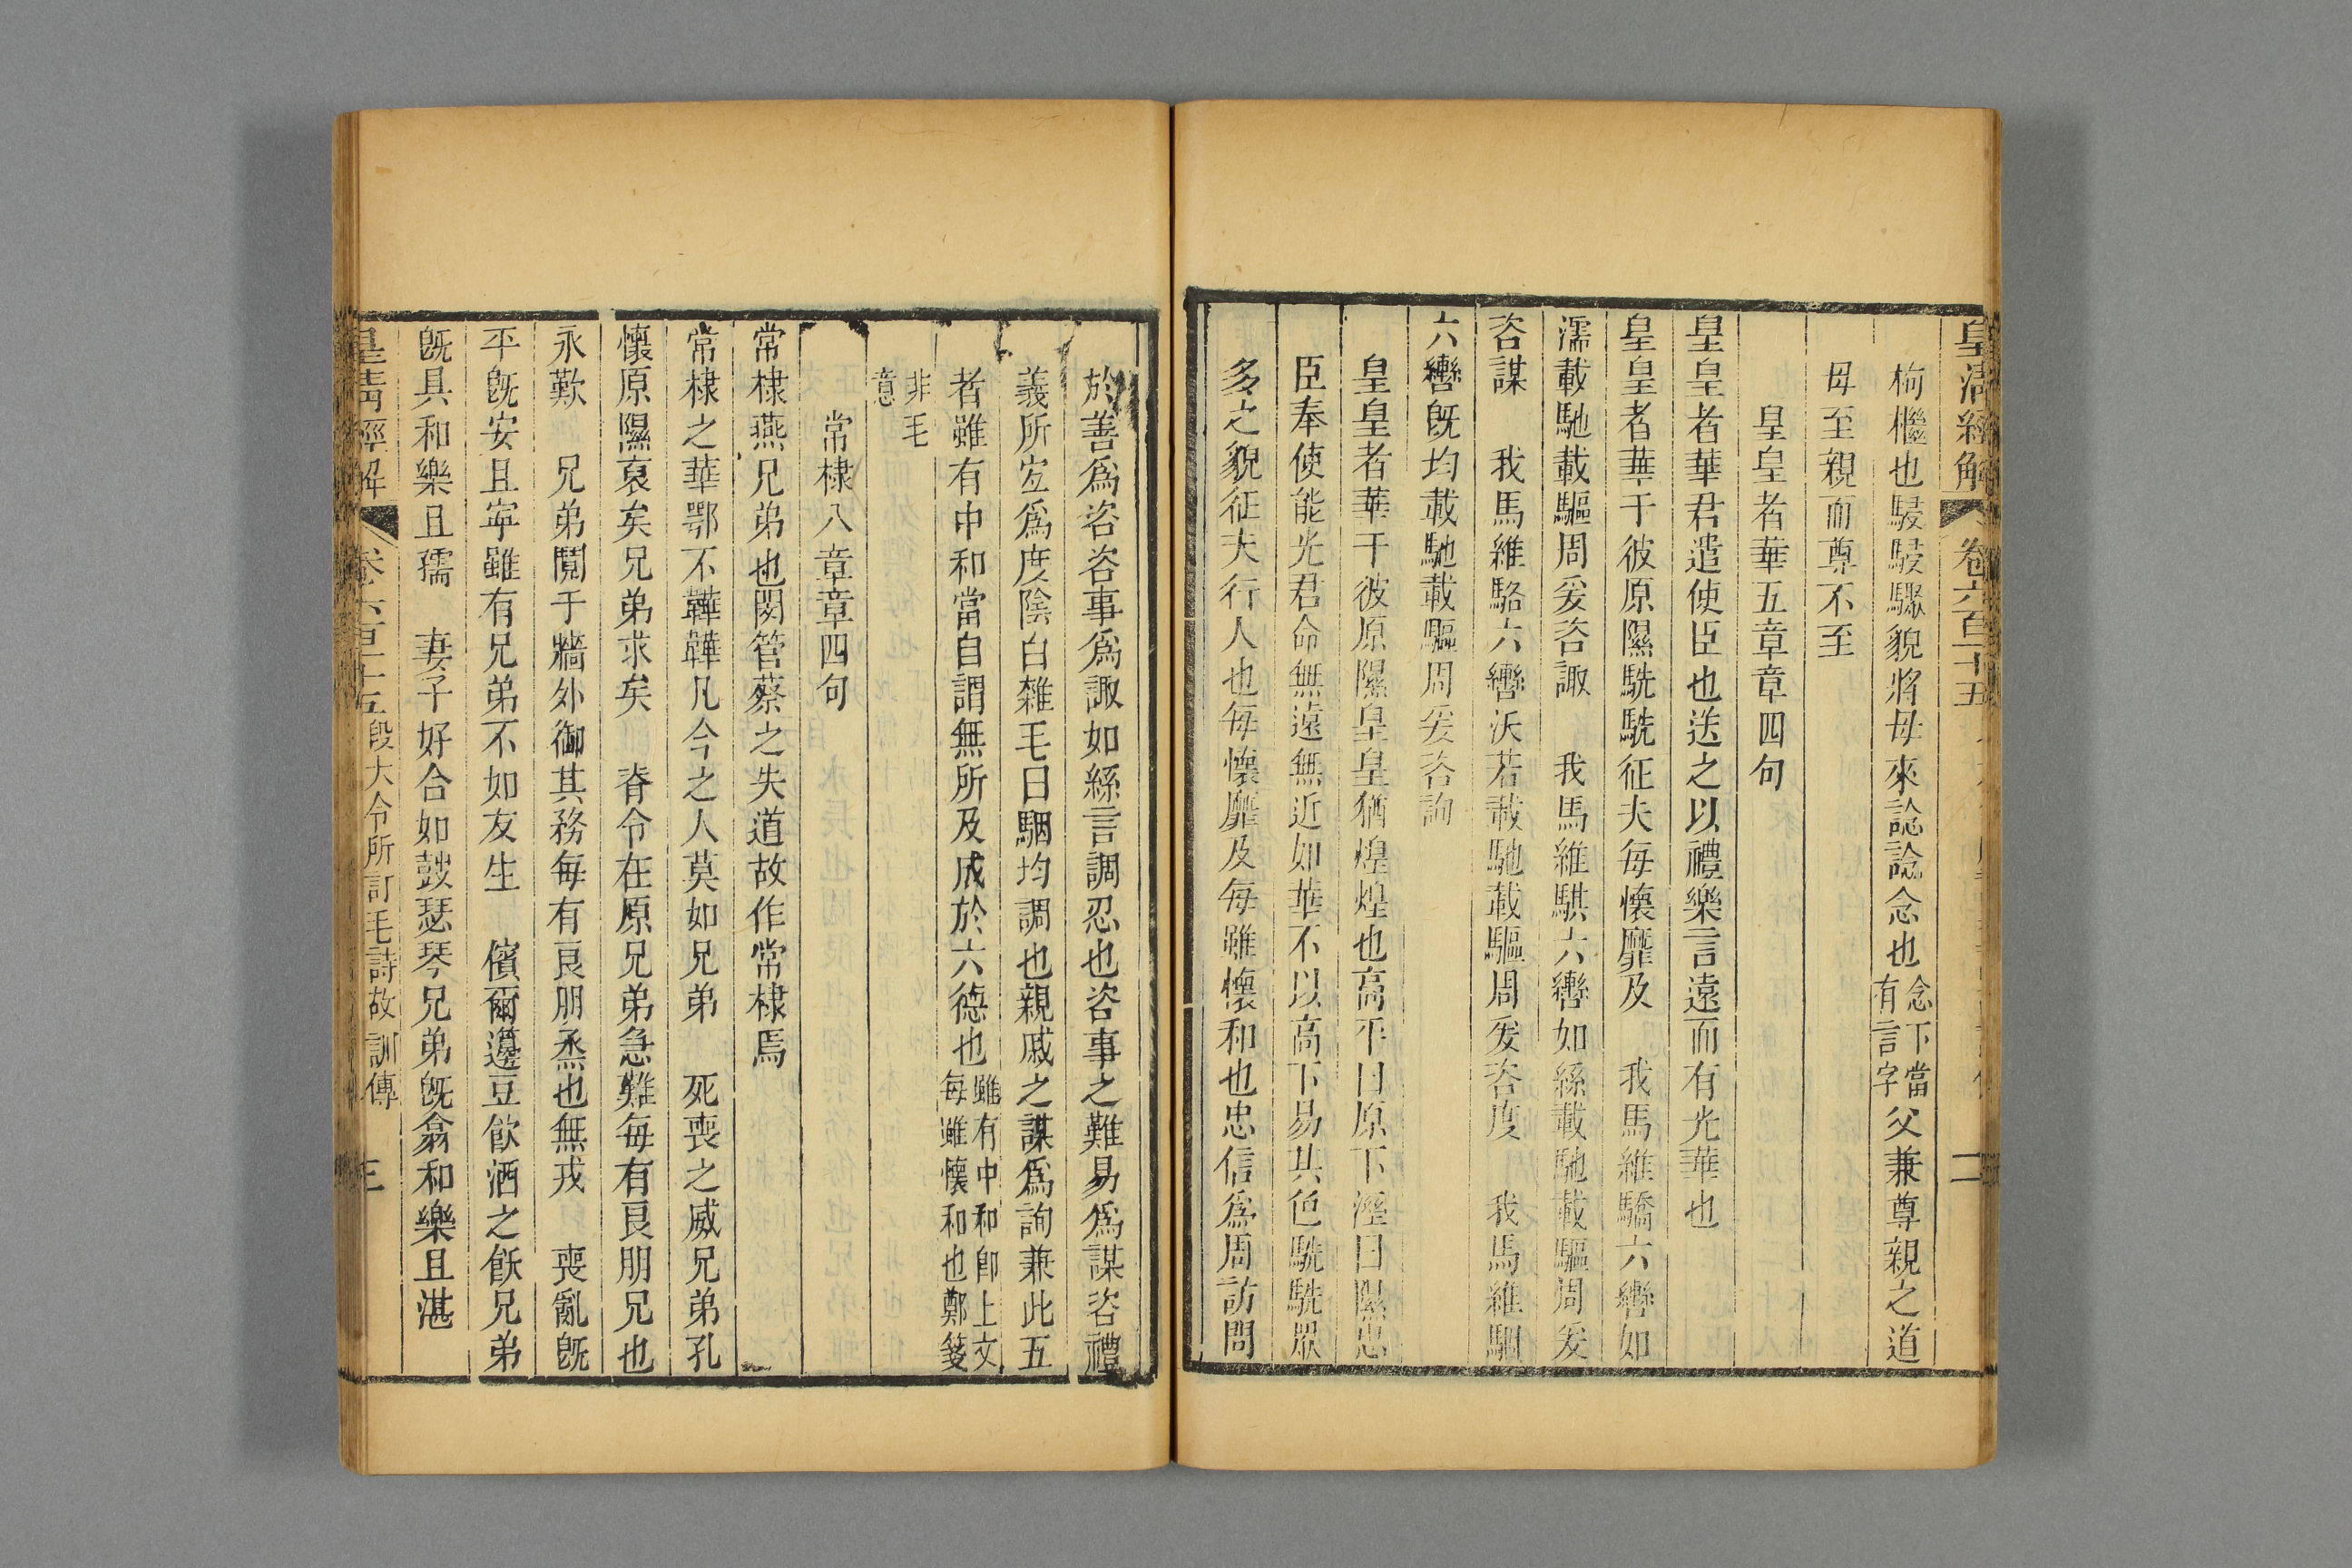 皇清經解 卷六百三十五 二
枸檵也駸駸驟貌將母來諗諗念也念下當有言字父兼尊親之道
母至親而尊不至
皇皇者華五章章四句
皇皇者華君遣使臣也送之以禮樂言遠而有光華也
皇皇者華于彼原隰駪駪征夫每懷靡及 我馬維驕六轡如
濡載馳載驅周爰咨諏 我馬維騏六轡如絲載馳載驅周爰
咨謀 我馬維駱六轡沃若載馳載驅周爰咨度 我馬維駰
六轡旣均載馳載驅周爰咨詢
皇皇者華于彼原隰皇皇猶煌煌也高平曰原下溼曰隰忠
臣奉使能光君命無遠無近如華不以高下易其色駪駪眾
多之貌征夫行人也每懷靡及每雖懷和也忠信爲周訪問
於善爲咨咨事爲諏如絲言調忍也咨事之難易爲謀咨禮
義所宐爲度陰白襍毛曰駰均調也親戚之謀爲詢兼此五
者雖有中和當自謂無所及成於六德也雖有中和卽上文每雖懷和也鄭箋
非毛意
常棣八章章四句
常棣燕兄弟也閔管蔡之失道故作常棣焉
常棣之華鄂不韡韡凡今之人莫如兄弟 死喪之威兄弟孔
懷原隰裒矣兄弟求矣 脊令在原兄弟急難每有良朋兄也
永歎 兄弟鬩于牆外御其務每有良朋烝也無戎 喪亂旣
平旣安且寧雖有兄弟不如友生 儐爾籩豆飮酒之飫兄弟
旣具和樂且孺 妻子好合如鼓瑟琴兄弟旣翕和樂且湛
皇清經解 卷六百三十五 段大令所訂毛詩故訓傳 三